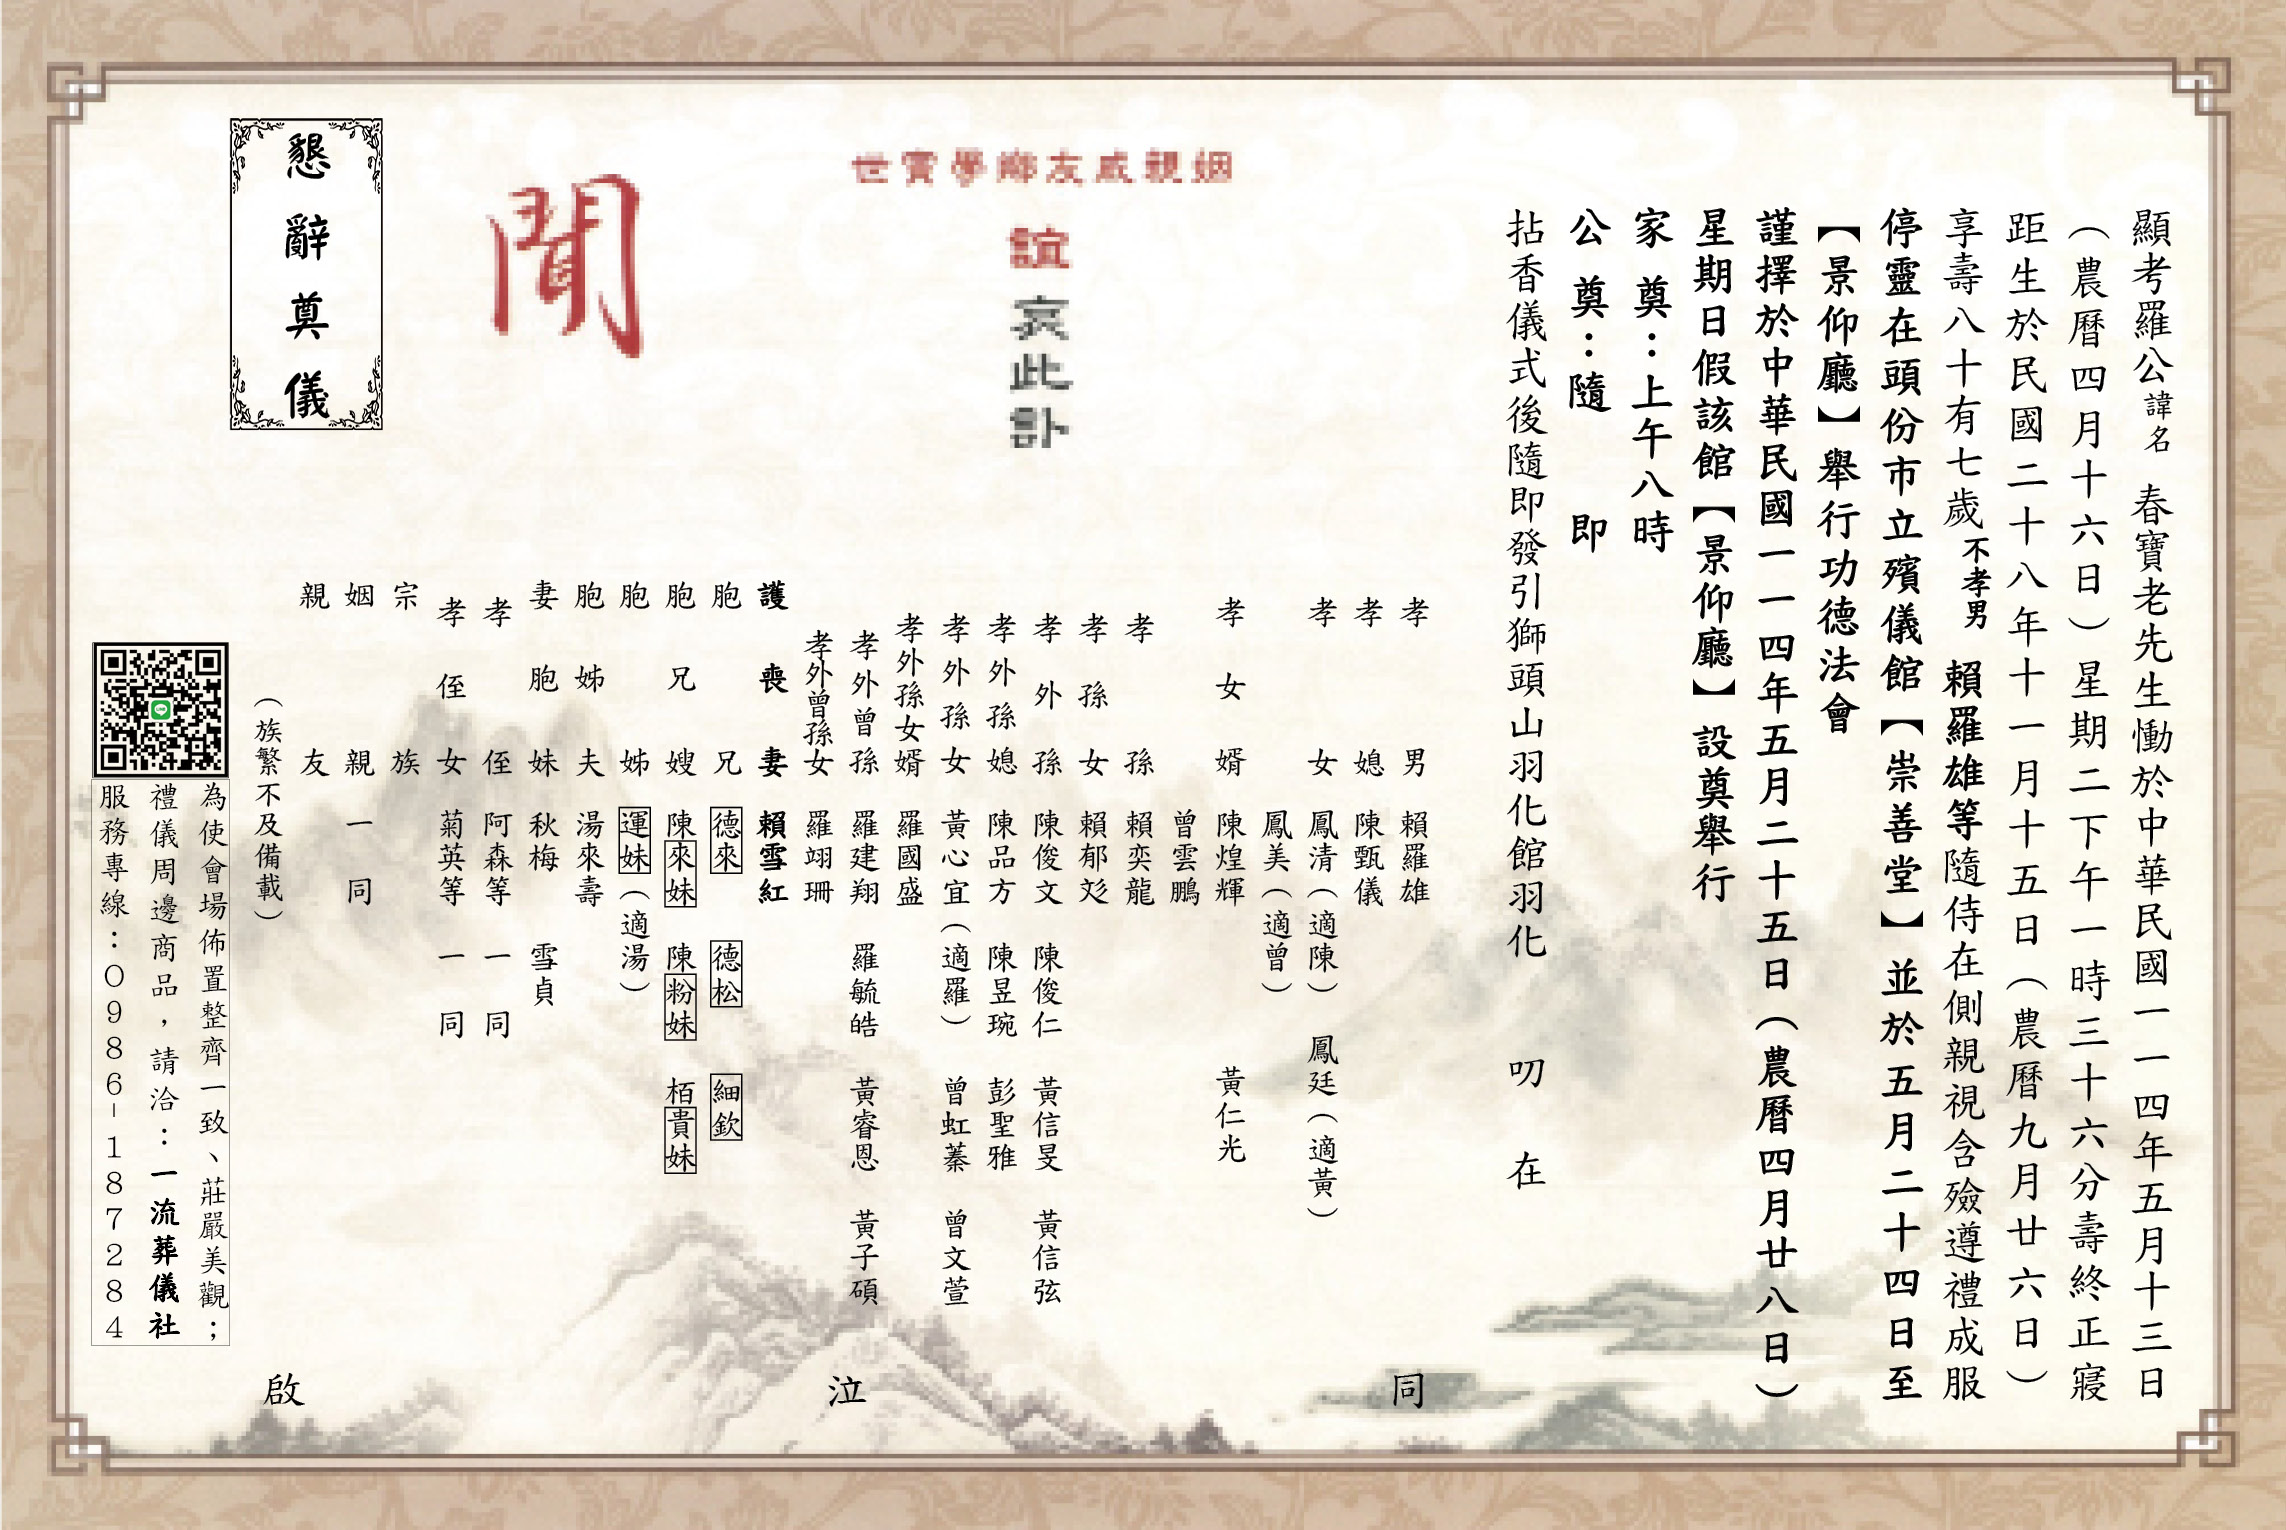 顯考羅公諱名 春寶老先生慟於中華民國一一四年五月十三日
（農曆四月十六日）星期二下午一時三十六分壽終正寢
距生於民國二十八年十一月十五日（農曆九月廿六日）
享壽八十有七歲不孝男 賴羅雄等隨侍在側親視含殮遵禮成服
停靈在頭份市立殯儀館【崇善堂】並於五月二十四日至
【景仰廳】舉行功德法會
謹擇於中華民國一一四年五月二十五日（農曆四月廿八日）
星期日假該館【景仰廳】設奠舉行
家奠：上午八時
公奠：隨即
拈香儀式後隨即發引獅頭山羽化館羽化 叨在
姻親戚友鄉學寅世
誼 哀此訃
聞
懇辭奠儀
孝男 賴羅雄
孝媳 陳甄儀
孝女 鳳清（適陳） 鳳廷（適黃）
鳳美（適曾）
孝女婿 陳煌輝 黃仁光
曾雲鵬
孝孫 賴奕龍
孝孫女 賴郁彣
孝外孫 陳俊文 陳俊仁 黃信旻 黃信弦
孝外孫媳 陳品方 陳昱琬 彭聖雅
孝外孫女 黃心宜（適羅） 曾虹蓁 曾文萱
孝外孫女婿 羅國盛
孝外曾孫 羅建翔 羅毓皓 黃睿恩 黃子碩
孝外曾孫女 羅翊珊
護喪妻 賴雪紅
胞兄 德來 德松 細欽
胞兄嫂 陳來妹 陳粉妹 栢貴妹
胞姊 運妹（適湯）
胞姊夫 湯來壽
妻胞妹 秋梅 雪貞
孝侄 阿森等 一同
孝侄女 菊英等 一同
宗族
姻親 一同
親友
（族繁不及備載）
同泣啟
為使會場佈置整齊一致、莊嚴美觀；
禮儀周邊商品，請洽：一流葬儀社
服務專線：0986-187284